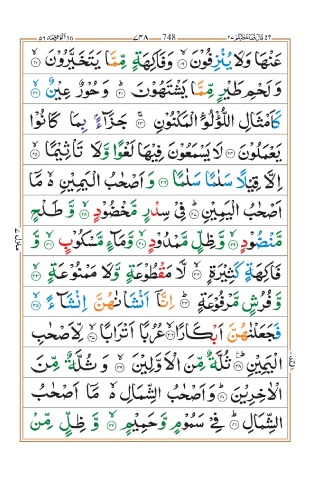 748 ٧٤٨
عَنْهَا وَلَا يُنْزِفُوْنَ ۙ﴿۱۹﴾ وَفَاكِهَةٍ مِّمَّا يَتَخَيَّرُوْنَ ۙ﴿۲۰﴾
وَلَحْمِ طَيْرٍ مِّمَّا يَشْتَهُوْنَ ؕ﴿۲۱﴾ وَحُوْرٌ عِيْنٌ ۙ﴿۲۲﴾
كَاَمْثَالِ اللُّؤْلُوٴِ الْمَكْنُوْنِ ۚ﴿۲۳﴾ جَزَآءًۢ بِمَا كَانُوْا
يَعْمَلُوْنَ ﴿۲۴﴾ لَا يَسْمَعُوْنَ فِيْهَا لَغْوًا وَّلَا تَاْثِيْمًا ۙ﴿۲۵﴾
اِلَّا قِيْلًا سَلٰمًا سَلٰمًا ﴿۲۶﴾ وَاَصْحٰبُ الْيَمِيْنِ ۙ۬ مَاۤ
اَصْحٰبُ الْيَمِيْنِ ؕ﴿۲۷﴾ فِيْ سِدْرٍ مَّخْضُوْدٍ ۙ﴿۲۸﴾ وَّطَلْحٍ
مَّنْضُوْدٍ ۙ﴿۲۹﴾ وَّظِلٍّ مَّمْدُوْدٍ ۙ﴿۳۰﴾ وَّمَآءٍ مَّسْكُوْبٍ ۙ﴿۳۱﴾ وَّ
فَاكِهَةٍ كَثِيْرَةٍ ۙ﴿۳۲﴾ لَّا مَقْطُوْعَةٍ وَّلَا مَمْنُوْعَةٍ ۙ﴿۳۳﴾
وَّفُرُشٍ مَّرْفُوْعَةٍ ؕ﴿۳۴﴾ اِنَّاۤ اَنْشَاْنٰهُنَّ اِنْشَآءً ۙ﴿۳۵﴾
فَجَعَلْنٰهُنَّ اَبْكَارًا ۙ﴿۳۶﴾ عُرُبًا اَتْرَابًا ۙ﴿۳۷﴾ لِّاَصْحٰبِ
الْيَمِيْنِ ؕ﴿۳۸﴾ ثُلَّةٌ مِّنَ الْاَوَّلِيْنَ ۙ﴿۳۹﴾ وَثُلَّةٌ مِّنَ
الْاٰخِرِيْنَ ؕ﴿۴۰﴾ وَاَصْحٰبُ الشِّمَالِ ۙ۬ مَاۤ اَصْحٰبُ
الشِّمَالِ ؕ﴿۴۱﴾ فِيْ سَمُوْمٍ وَّحَمِيْمٍ ۙ﴿۴۲﴾ وَّظِلٍّ مِّنْ